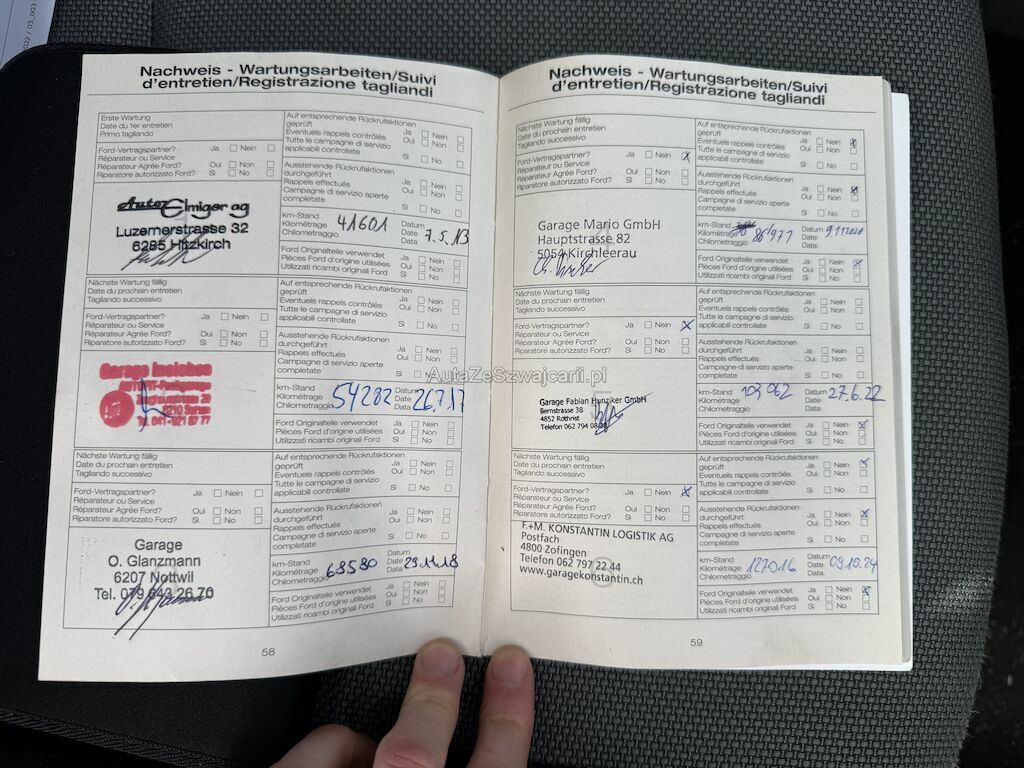 Nachweis - Wartungsarbeiten/Suivi
d'entretien/Registrazione tagliandi
Erste Wartung
Date du 1er entretien
Primo tagliando
Ford-Vertragspartner? Ja Nein
Réparateur ou Service
Réparateur Agrée Ford? Oui Non
Riparatore autorizzato Ford? Si No
Auto Elmiger ag
Luzernerstrasse 32
6285 Hitzkirch
Auf entsprechende Rückrufaktionen
geprüft Ja Nein
Eventuels rappels contrôlés Oui Non
Tutte le campagne di servizio
applicabili controllate Si No
Ausstehende Rückrufaktionen
durchgeführt Ja Nein
Rappels effectués Oui Non
Campagne di servizio aperte
completate Si No
km-Stand Datum
Kilométrage 41601 Date 7.5.13
Chilometraggio Data
Ford Originalteile verwendet Ja Nein
Pièces Ford d'origine utilisées Oui Non
Utilizzati ricambi originali Ford Si No
Nächste Wartung fällig
Date du prochain entretien
Tagliando successivo
Ford-Vertragspartner? Ja Nein
Réparateur ou Service
Réparateur Agrée Ford? Oui Non
Riparatore autorizzato Ford? Si No
Garage
Auf entsprechende Rückrufaktionen
geprüft Ja Nein
Eventuels rappels contrôlés Oui Non
Tutte le campagne di servizio
applicabili controllate Si No
Ausstehende Rückrufaktionen
durchgeführt Ja Nein
Rappels effectués Oui Non
Campagne di servizio aperte
completate Si No
km-Stand Datum
Kilométrage 54282 Date 26.7.17
Chilometraggio Data
Ford Originalteile verwendet Ja Nein
Pièces Ford d'origine utilisées Oui Non
Utilizzati ricambi originali Ford Si No
Nächste Wartung fällig
Date du prochain entretien
Tagliando successivo
Ford-Vertragspartner? Ja Nein
Réparateur ou Service
Réparateur Agrée Ford? Oui Non
Riparatore autorizzato Ford? Si No
Garage
O. Glanzmann
6207 Nottwil
Tel. 079 643 26 70
Auf entsprechende Rückrufaktionen
geprüft Ja Nein
Eventuels rappels contrôlés Oui Non
Tutte le campagne di servizio
applicabili controllate Si No
Ausstehende Rückrufaktionen
durchgeführt Ja Nein
Rappels effectués Oui Non
Campagne di servizio aperte
completate Si No
km-Stand Datum
Kilométrage 68580 Date 29.11.18
Chilometraggio Data
Ford Originalteile verwendet Ja Nein
Pièces Ford d'origine utilisées Oui Non
Utilizzati ricambi originali Ford Si No
58
Nachweis - Wartungsarbeiten/Suivi
d'entretien/Registrazione tagliandi
Nächste Wartung fällig
Date du prochain entretien
Tagliando successivo
Ford-Vertragspartner? Ja Nein X
Réparateur ou Service
Réparateur Agrée Ford? Oui Non
Riparatore autorizzato Ford? Si No
Garage Mario GmbH
Hauptstrasse 82
5054 Kirchleerau
Auf entsprechende Rückrufaktionen
geprüft Ja Nein X
Eventuels rappels contrôlés Oui Non
Tutte le campagne di servizio
applicabili controllate Si No
Ausstehende Rückrufaktionen
durchgeführt Ja Nein X
Rappels effectués Oui Non
Campagne di servizio aperte
completate Si No
km-Stand Datum
Kilométrage 86'977 Date
Chilometraggio Data
Ford Originalteile verwendet Ja Nein X
Pièces Ford d'origine utilisées Oui Non
Utilizzati ricambi originali Ford Si No
Nächste Wartung fällig
Date du prochain entretien
Tagliando successivo
Ford-Vertragspartner? Ja Nein X
Réparateur ou Service
Réparateur Agrée Ford? Oui Non
Riparatore autorizzato Ford? Si No
Garage Fabian Hunziker GmbH
Bernstrasse 38
4852 Rothrist
Telefon 062 794
Auf entsprechende Rückrufaktionen
geprüft Ja Nein
Eventuels rappels contrôlés Oui Non
Tutte le campagne di servizio
applicabili controllate Si No
Ausstehende Rückrufaktionen
durchgeführt Ja Nein
Rappels effectués Oui Non
Campagne di servizio aperte
completate Si No
km-Stand Datum
Kilométrage 103 062 Date 27.6.22
Chilometraggio Data
Ford Originalteile verwendet Ja Nein X
Pièces Ford d'origine utilisées Oui Non
Utilizzati ricambi originali Ford Si No
Nächste Wartung fällig
Date du prochain entretien
Tagliando successivo
Ford-Vertragspartner? Ja Nein X
Réparateur ou Service
Réparateur Agrée Ford? Oui Non
Riparatore autorizzato Ford? Si No
F.+M. KONSTANTIN LOGISTIK AG
Postfach
4800 Zofingen
Telefon 062 797 22 44
www.garagekonstantin.ch
Auf entsprechende Rückrufaktionen
geprüft Ja Nein X
Eventuels rappels contrôlés Oui Non
Tutte le campagne di servizio
applicabili controllate Si No
Ausstehende Rückrufaktionen
durchgeführt Ja Nein X
Rappels effectués Oui Non
Campagne di servizio aperte
completate Si No
km-Stand Datum
Kilométrage 127016 Date 09.10.24
Chilometraggio Data
Ford Originalteile verwendet Ja Nein X
Pièces Ford d'origine utilisées Oui Non
Utilizzati ricambi originali Ford Si No
59
AutaZeSzwajcarii.pl